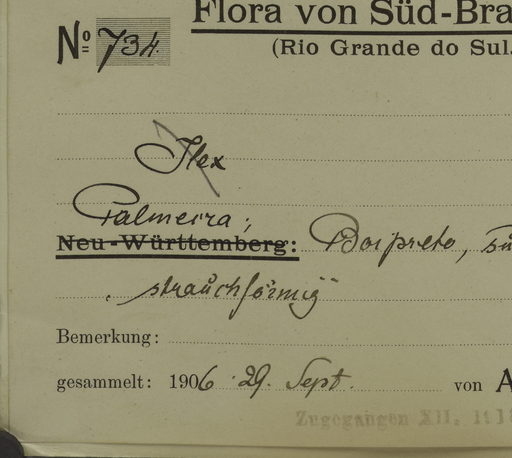 Flora von Süd-Bra
Nº 734.
(Rio Grande do Sul.
Ilex
Palmeira;
Neu-Württemberg: Boipreto,
strauchförmig
Bemerkung:
gesammelt: 1906 29. Sept. von A
Zugegangen XII.